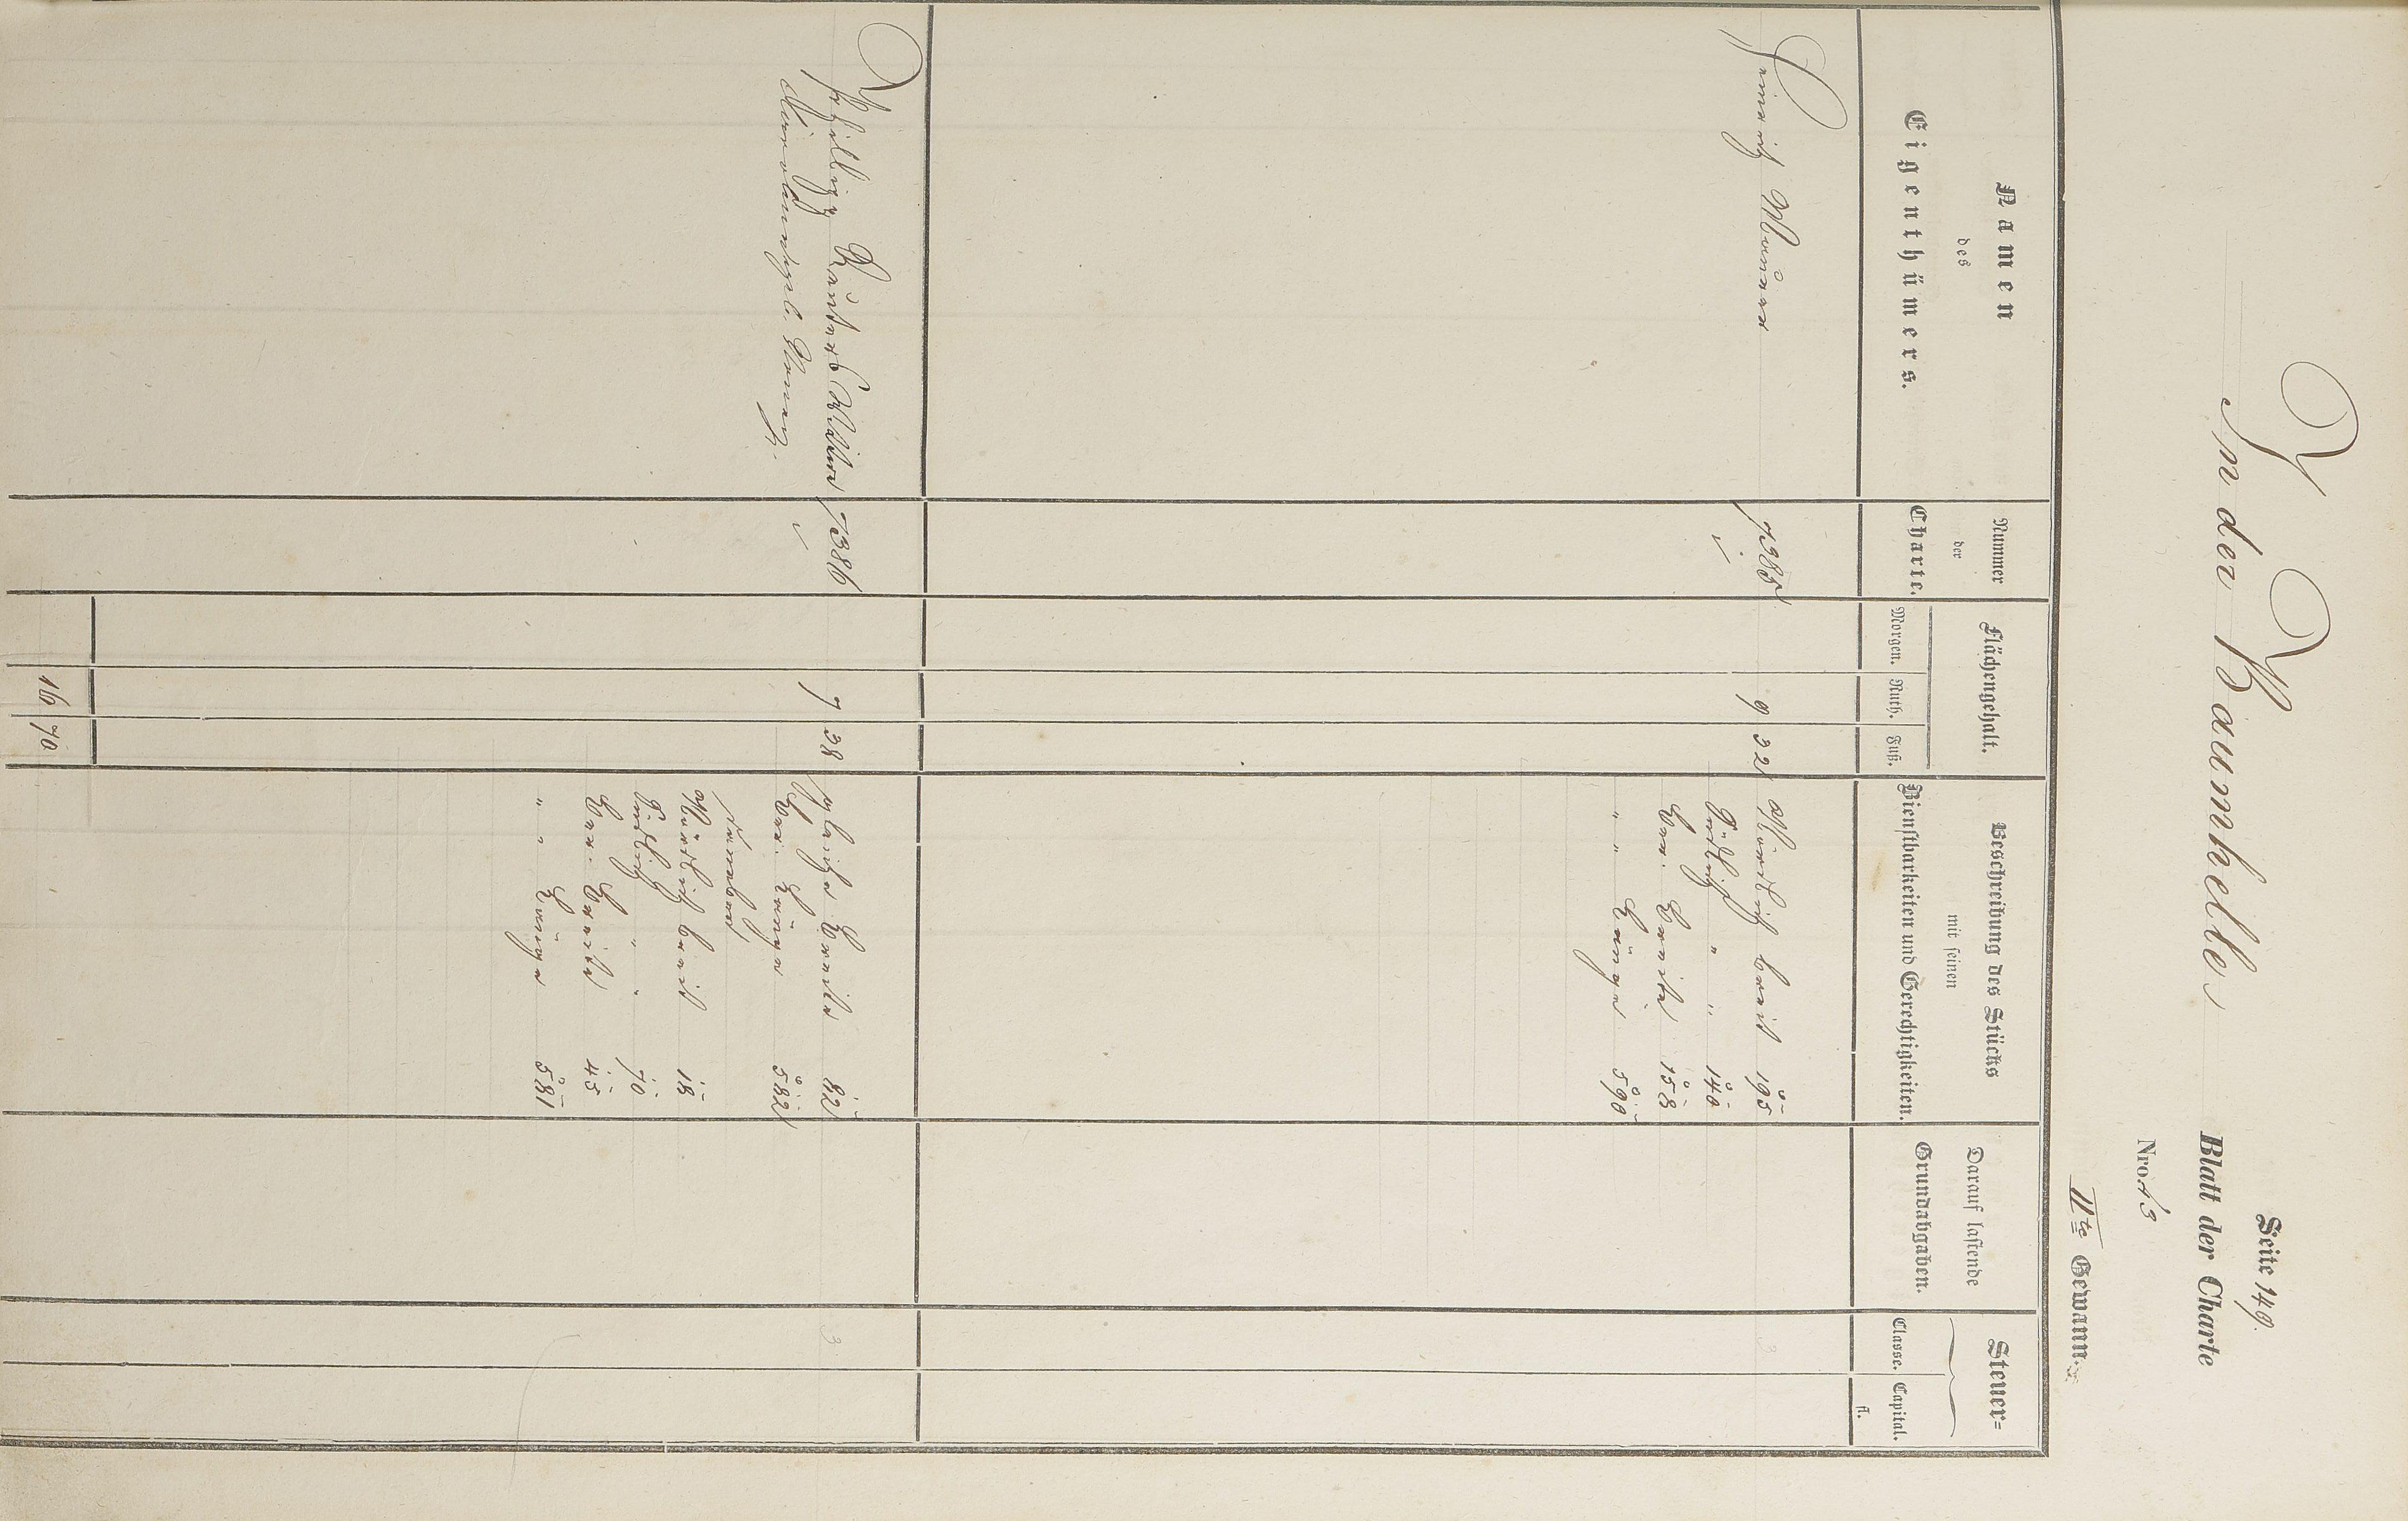 Seite 149.
In der Baumhelle
Blatt der Charte
Nro 13
IIte Gewann.
Namen
des
Eigenthümers.
Nummer
der
Charte.
Flächengehalt.
Morgen. Ruth. Fuß.
Beschreibung des Stücks
mit seinen
Dienstbarkeiten und Gerechtigkeiten.
Darauf lastende
Grundabgaben.
Steuer-
Classe. Capital.
fl.
Heinrich 7385 9 32 Nördlich breit 195
Südlich " " 140
Cor. Breite 158
" " Länge 590
Philipp 7386 7 38 gleiche Breite 82 3
Cor. Länge 582
Nördlich breit 18
Südlich " " 70
Cor. Breite 45
" " Länge 581
16 70